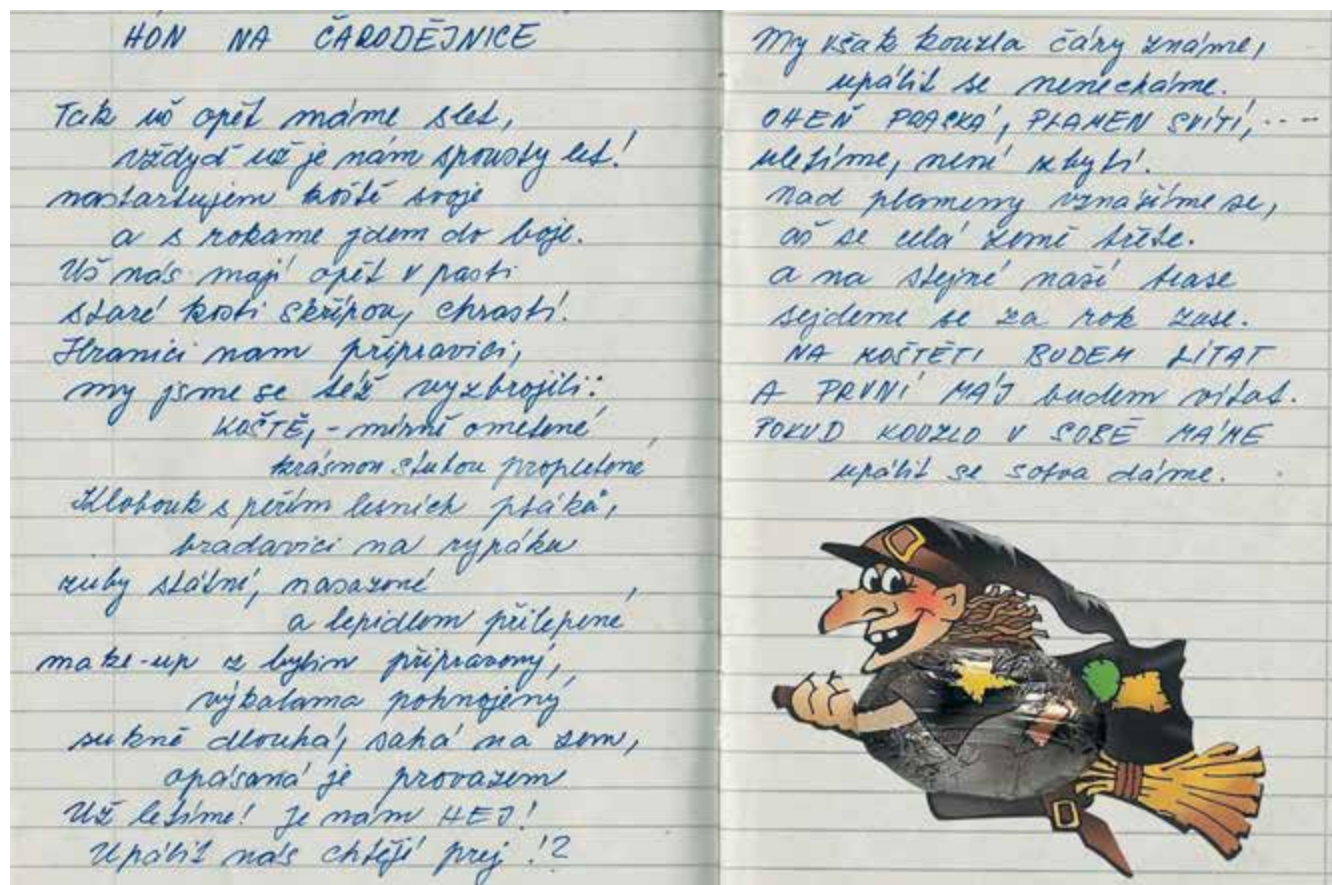 HON NA ČARODĚJNICE
Tak už opět máme slet,
vždyď už je nám spousty let!
nastartujem koště svoje
a s rokama jdem do boje.
Už nás mají opět v pasti
staré kosti skřípou, chrastí!
Hranici nam připravili,
my jsme se též vyzbrojili:
KOŠTĚ, - mírně ometené
krásnou stuhou propletené,
Klobouk s peřím lesních ptáků,
bradavici na rypáku
zuby státní, nasazené
a lepidlem přilepené,
make-up z bylin připravený,
výkalama pohnojený,
sukně dlouhá, sahá na zem,
opásaná je provazem
Už letíme! Je nám HEJ!
Upálit nás chtějí prej !?
My však kouzla čáry známe,
upálit se nenecháme.
OHEŇ PRASKÁ, PLAMEN SVÍTÍ, ....
uletíme, není zbytí.
nad plameny vznášíme se,
až se celá země třese.
a na stejné naší trase
sejdeme se za rok zase.
NA KOŠTĚTI BUDEM LÍTAT
A PRVNÍ MÁJ budem vítat.
POKUD KOUZLO V SOBĚ MÁME
upálit se sotva dáme.